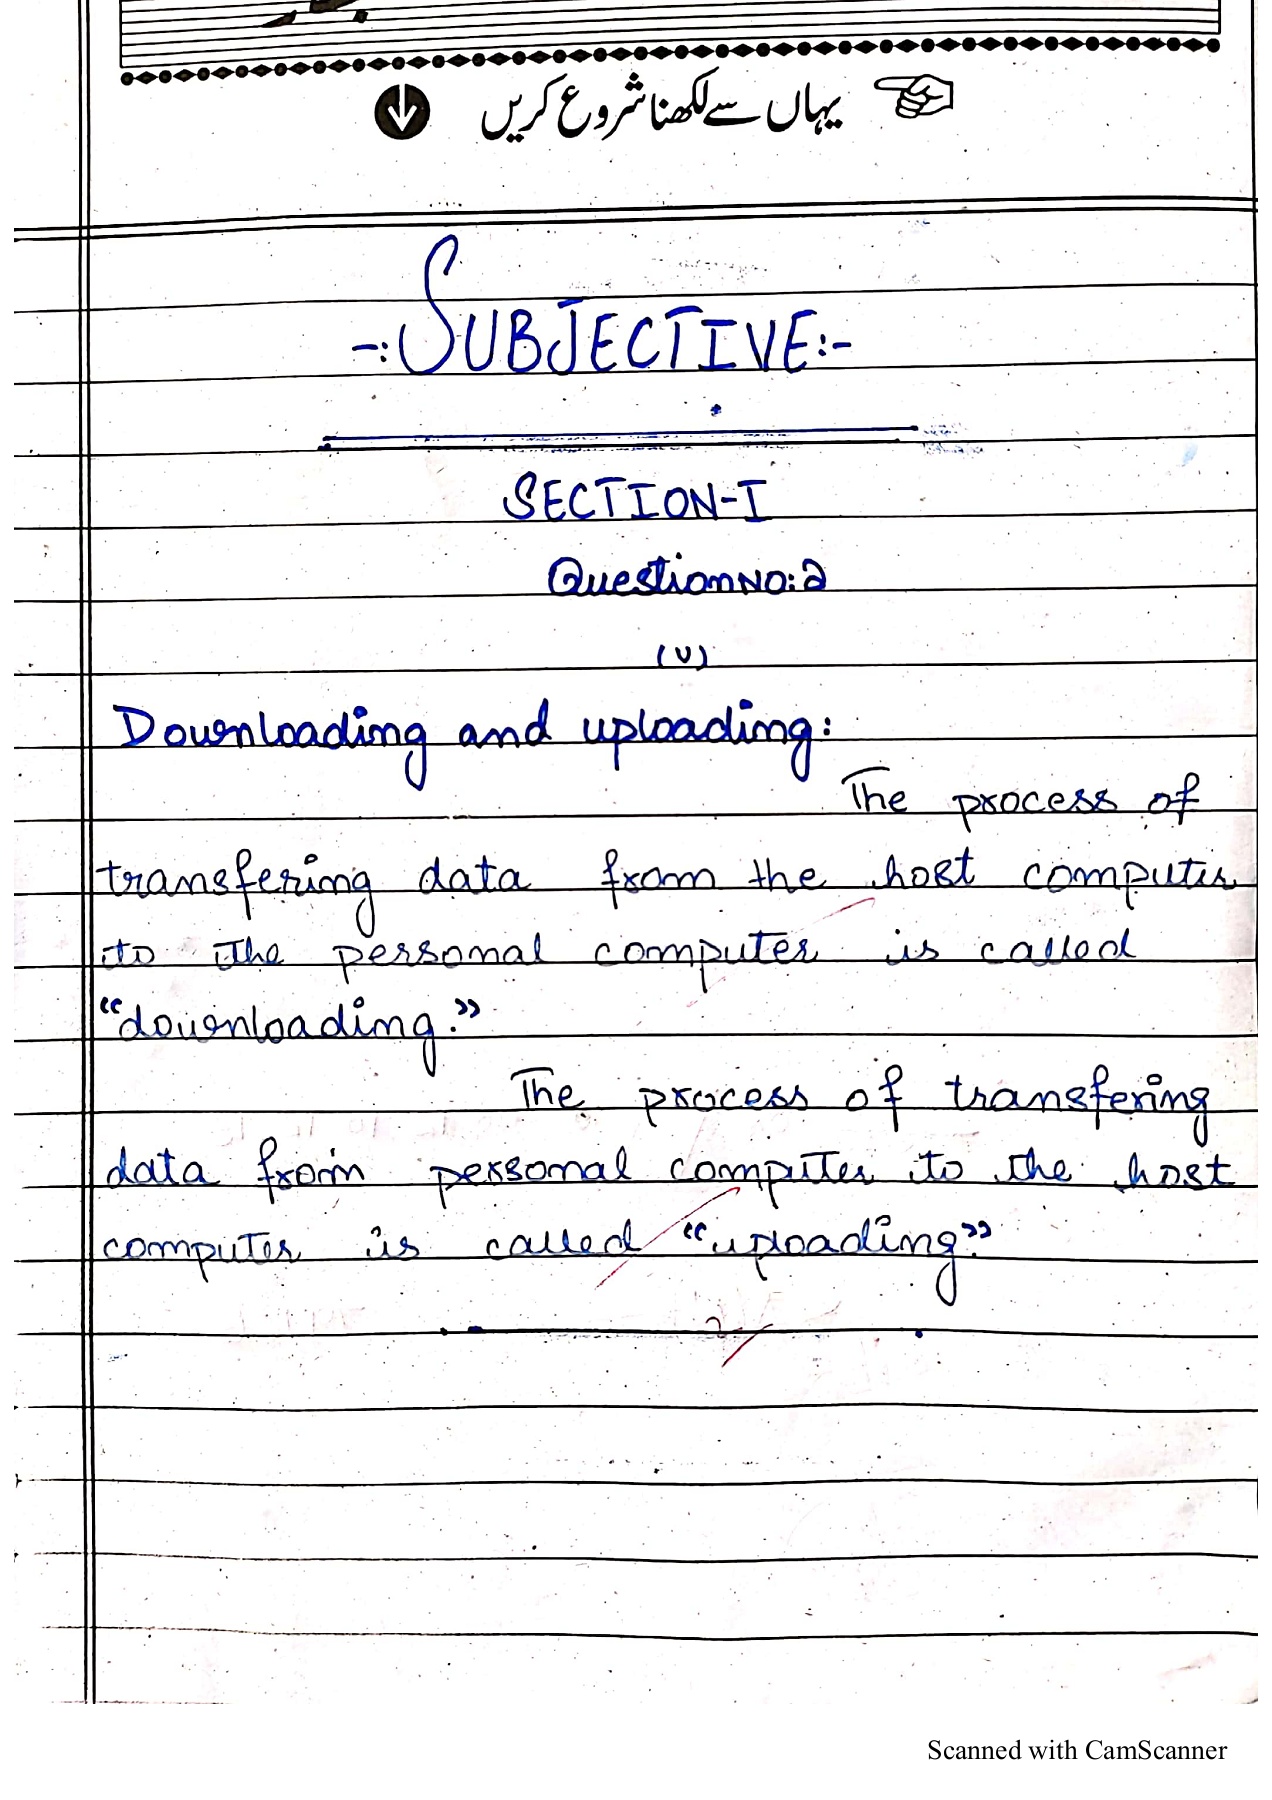 یہاں سے لکھنا شروع کریں
-:SUBJECTIVE:-
SECTION-I
Question No:2
(v)
Downloading and uploading:
The process of
transfering data from the host computer
to the personal computer is called
“downloading.”
The process of transfering
data from personal computer to the host
computer is called “uploading”.
2
Scanned with CamScanner